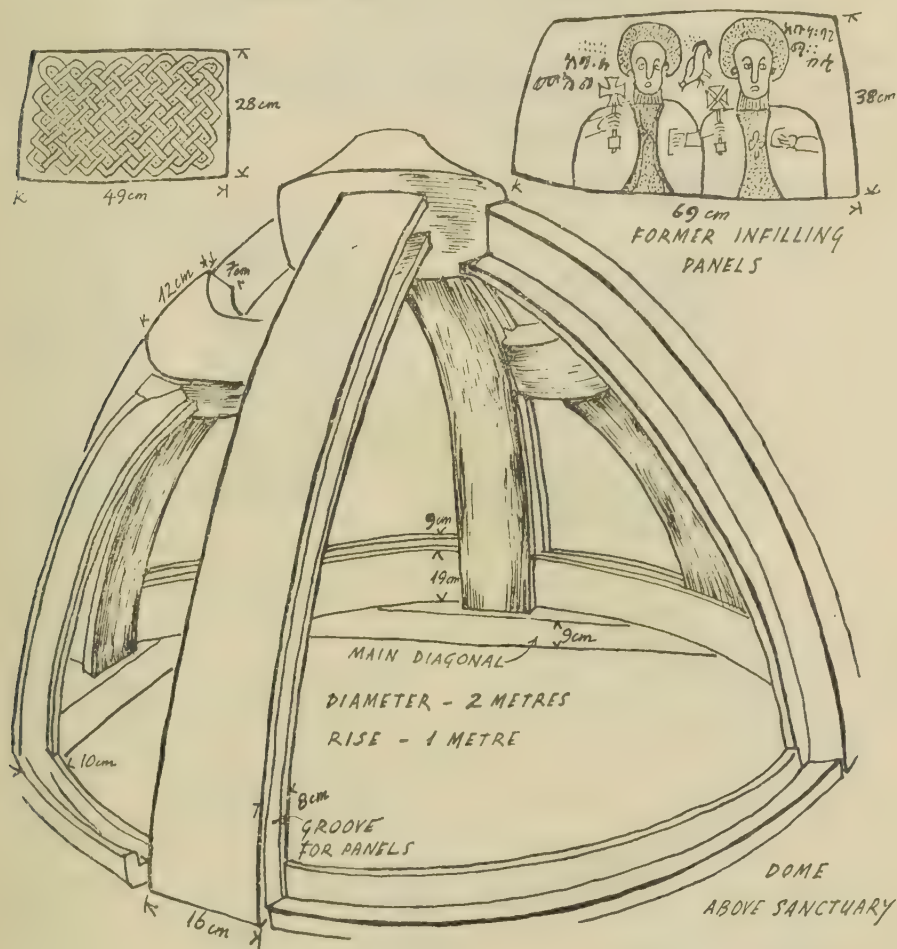 28cm
49cm
38cm
69 cm
FORMER INFILLING
PANELS
12cm
7cm
9cm
19cm
9cm
MAIN DIAGONAL
DIAMETER - 2 METRES
RISE - 1 METRE
10cm
8cm
GROOVE
FOR PANELS
16cm
DOME
ABOVE SANCTUARY